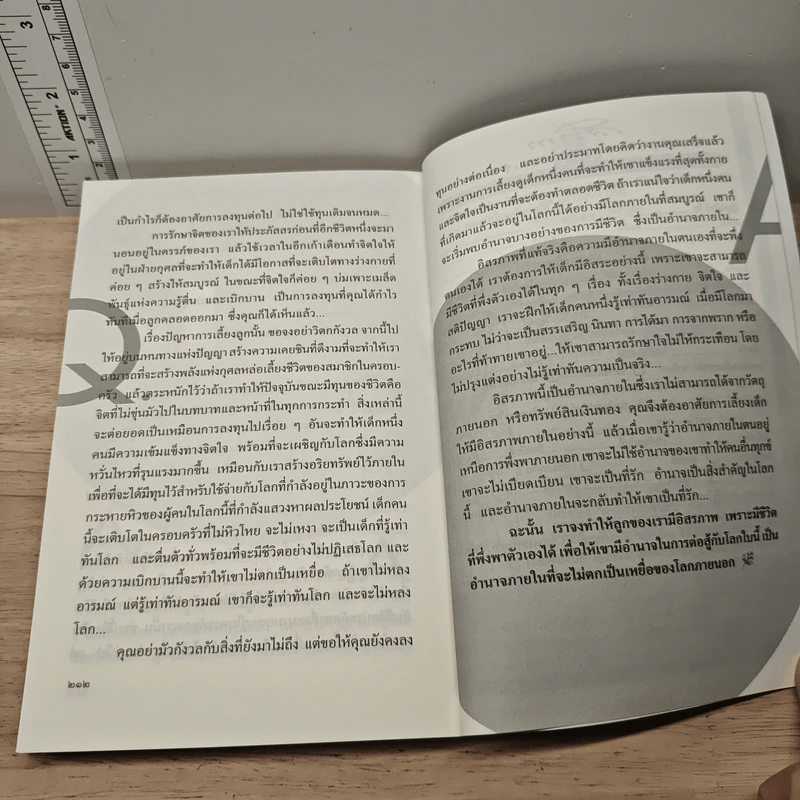 3
2
1
AKTION
Q
เป็นกำไรก็ต้องอาศัยการลงทุนต่อไป ไม่ใช่ใช้ทุนเดิมจนหมด...
การรักษาจิตของเราให้ประภัสสรก่อนที่อีกชีวิตหนึ่งจะมา
นอนอยู่ในครรภ์ของเรา แล้วใช้เวลาในอีกเก้าเดือนทำจิตให้
อยู่ในฝ่ายกุศลที่จะทำให้เด็กได้มีโอกาสที่จะเติบโตทางร่างกายที่
ค่อย ๆ สร้างให้สมบูรณ์ ในขณะที่จิตใจก็ค่อย ๆ บ่มเพาะเมล็ด
พันธุ์แห่งความรู้ตื่น และเบิกบาน เป็นการลงทุนที่คุณได้กำไร
ทันทีเมื่อลูกคลอดออกมา ซึ่งคุณก็ได้เห็นแล้ว...
เรื่องปัญหาการเลี้ยงลูกนั้น ของอย่าวิตกกังวล จากนี้ไป
ให้อยู่บนหนทางแห่งปัญญา สร้างความเคยชินที่ดีงามที่จะทำให้เรา
สามารถที่จะสร้างพลังแห่งกุศลหล่อเลี้ยงชีวิตของสมาชิกในครอบ-
ครัว แล้วตระหนักไว้ว่าถ้าเราทำให้ปัจจุบันขณะมีทุนของชีวิตคือ
จิตที่ไม่ขุ่นมัวไปในบทบาทและหน้าที่ในทุกการกระทำ สิ่งเหล่านี้
จะต่อยอดเป็นเหมือนการลงทุนไปเรื่อย ๆ อันจะทำให้เด็กหนึ่ง
คนมีความเข้มแข็งทางจิตใจ พร้อมที่จะเผชิญกับโลกซึ่งมีความ
หวั่นไหวที่รุนแรงมากขึ้น เหมือนกับเราสร้างอริยทรัพย์ไว้ภายใน
เพื่อที่จะได้มีทุนไว้สำหรับใช้จ่ายกับโลกที่กำลังอยู่ในภาวะของการ
กระหายหิวของผู้คนในโลกนี้ที่กำลังแสวงหาผลประโยชน์ เด็กคน
นี้จะเติบโตในครอบครัวที่ไม่หิวโหย จะไม่เหงา จะเป็นเด็กที่รู้เท่า
ทันโลก และตื่นตัวทั่วพร้อมที่จะมีชีวิตอย่างไม่ปฏิเสธโลก และ
ด้วยความเบิกบานนี้จะทำให้เขาไม่ตกเป็นเหยื่อ ถ้าเขาไม่หลง
อารมณ์ แต่รู้เท่าทันอารมณ์ เขาก็จะรู้เท่าทันโลก และจะไม่หลง
โลก...
คุณอย่ามัวกังวลกับสิ่งที่ยังมาไม่ถึง แต่ขอให้คุณยังคงลง
๒๑๒
A
ทุนอย่างต่อเนื่อง และอย่าประมาทโดยคิดว่างานคุณเสร็จแล้ว
เพราะงานการเลี้ยงดูเด็กหนึ่งคนที่จะทำให้เขาแข็งแรงที่สุดทั้งกาย
และจิตใจเป็นงานที่จะต้องทำตลอดชีวิต ถ้าเราแน่ใจว่าเด็กหนึ่งคน
ที่เกิดมาแล้วจะอยู่ในโลกนี้ได้อย่างมีโลกภายในที่สมบูรณ์ เขาก็
จะเริ่มพบอำนาจบางอย่างของการมีชีวิต ซึ่งเป็นอำนาจภายใน...
อิสรภาพที่แท้จริงคือความมีอำนาจภายในตนเองที่จะพึ่ง
ตนเองได้ เราต้องการให้เด็กมีอิสระอย่างนี้ เพราะเขาจะสามารถ
มีชีวิตที่พึ่งตัวเองได้ในทุก ๆ เรื่อง ทั้งเรื่องร่างกาย จิตใจ และ
สติปัญญา เราจะฝึกให้เด็กคนหนึ่งรู้เท่าทันอารมณ์ เมื่อมีโลกมา
กระทบ ไม่ว่าจะเป็นสรรเสริญ นินทา การได้มา การจากพราก หรือ
อะไรที่ท้าทายเขาอยู่...ให้เขาสามารถรักษาใจไม่ให้กระเทือน โดย
ไม่ปรุงแต่งอย่างไม่รู้เท่าทันความเป็นจริง...
อิสรภาพนี้เป็นอำนาจภายในซึ่งเราไม่สามารถได้จากวัตถุ
ภายนอก หรือทรัพย์สินเงินทอง คุณจึงต้องอาศัยการเลี้ยงเด็ก
ให้มีอิสรภาพภายในอย่างนี้ แล้วเมื่อเขารู้ว่าอำนาจภายในตนอยู่
เหนือการพึ่งพาภายนอก เขาจะไม่ใช้อำนาจของเขาทำให้คนอื่นทุกข์
เขาจะไม่เบียดเบียน เขาจะเป็นที่รัก อำนาจเป็นสิ่งสำคัญในโลก
นี้ และอำนาจภายในจะกลับทำให้เขาเป็นที่รัก...
ฉะนั้น เราจงทำให้ลูกของเรามีอิสรภาพ เพราะมีชีวิต
ที่พึ่งพาตัวเองได้ เพื่อให้เขามีอำนาจในการต่อสู้กับโลกใบนี้ เป็น
อำนาจภายในที่จะไม่ตกเป็นเหยื่อของโลกภายนอก